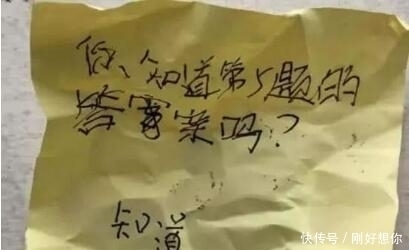 你知道第5题的
答案吗?
知道
快传号/刚好想你